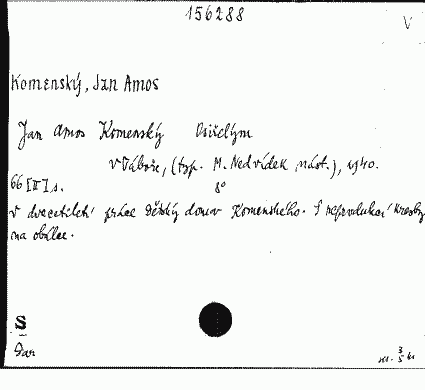 156288
V
Komenský, Jan Amos
Jan Amos Komenský Osiřelým
v Táboře, (typ. M. Nedvídek nást.), 1940.
66 [II] s. 8°
v dvacetiletí práce Dětský domov Komenského. S reprodukcí kresby
na obálce.
S
Dar